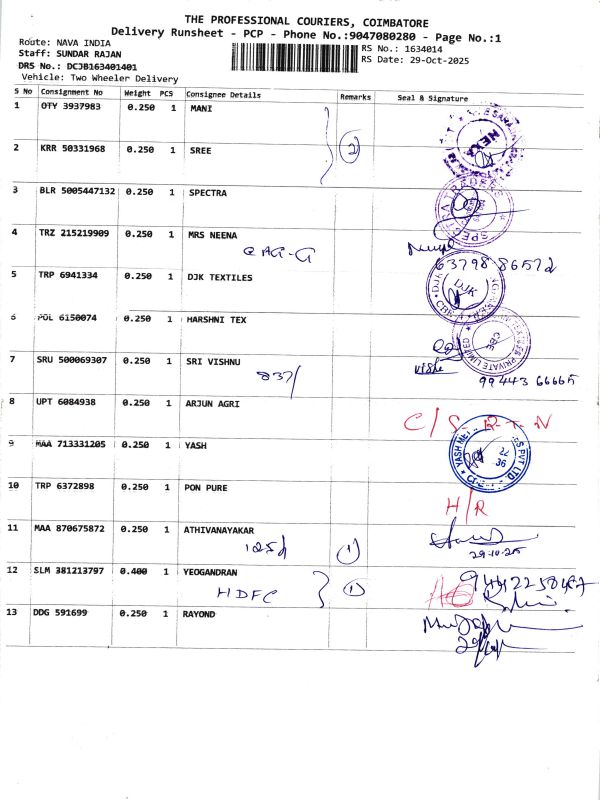 THE PROFESSIONAL COURIERS, COIMBATORE
Delivery Runsheet - PCP - Phone No.:9047080280 - Page No.:1
Route: NAVA INDIA
Staff: SUNDAR RAJAN
DRS No.: DCJB163401401
Vehicle: Two Wheeler Delivery
RS No.: 1634014
RS Date: 29-Oct-2025
S No Consignment No Weight PCS Consignee Details Remarks Seal & Signature
1 OTY 3937983 0.250 1 MANI
2 KRR 50331968 0.250 1 SREE 2
3 BLR 5005447132 0.250 1 SPECTRA
4 TRZ 215219909 0.250 1 MRS NEENA
63798 86572
5 TRP 6941334 0.250 1 DJK TEXTILES DJK
6 POL 6150074 0.250 1 HARSHNI TEX
7 SRU 500069307 0.250 1 SRI VISHNU
837/ 99443 66665
8 UPT 6084938 0.250 1 ARJUN AGRI
C/S R-T-N
9 MAA 713331205 0.250 1 YASH
10 TRP 6372898 0.250 1 PON PURE
H/R
11 MAA 870675872 0.250 1 ATHIVANAYAKAR
1 29-10-25
12 SLM 381213797 0.400 1 YEOGANDRAN
HDFC 1
13 DDG 591699 0.250 1 RAYOND